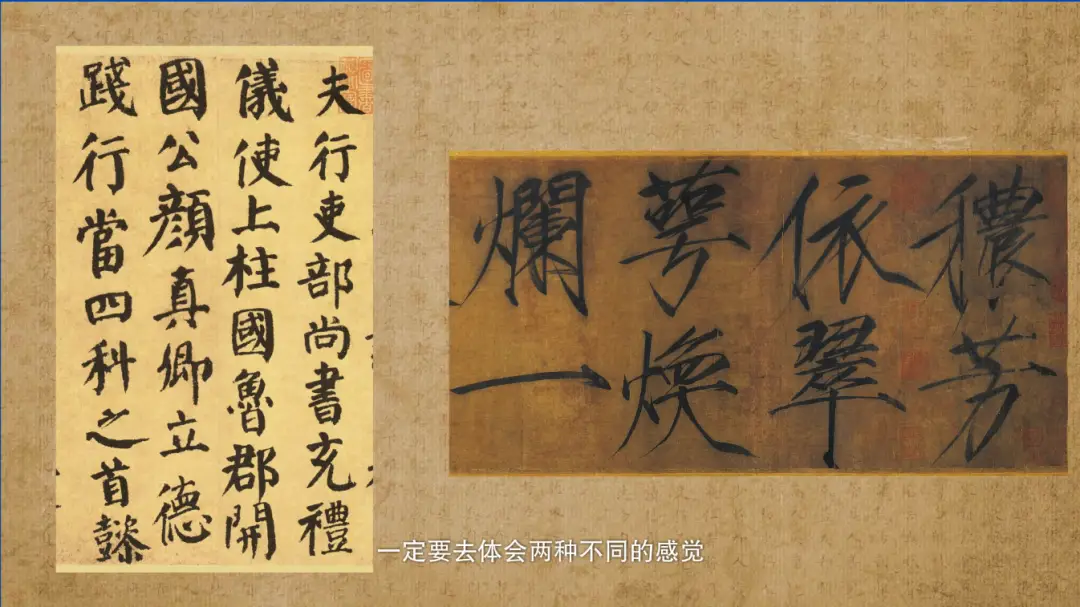 夫行吏部尚書充禮
儀使上柱國魯郡開
國公顔真卿立德
踐行當四科之首懿
穠芳
依翠
萼煥
爛一
一定要去体会两种不同的感觉